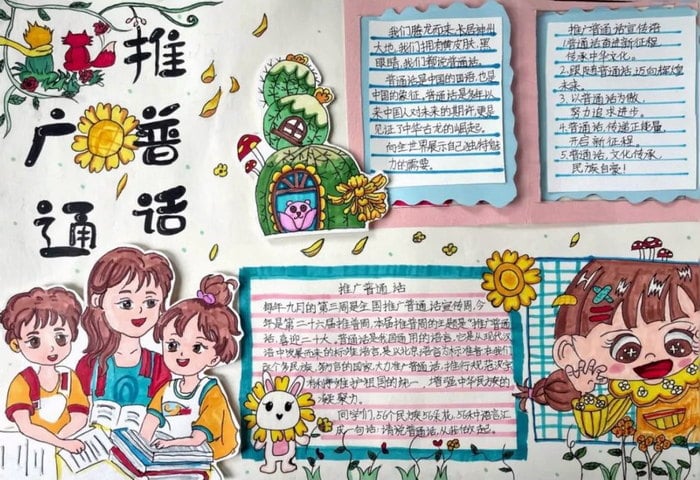 推广普通话
我们腾龙而来,长居神州
大地,我们拥有黄皮肤,黑
眼睛,我们都说普通话。
普通话是中国的国语,也是
中国的象征,普通话是多年以
来中国人对未来的期许,更是
见证了中华古龙的崛起。
向全世界展示自己独特魅
力的需要。
推广普通话宣传语
1.普通话奋进新征程
传承中华文化。
2.
未来。
3.以普通话为傲,
努力追求进步。
4.普通话,传递正能量,
开启新征程。
5.普通话,文化传承,
民族自豪!
推广普通话
每年九月的第三周是全国推广普通话宣传周,今
年是第二十六届推普周,本届推普周的主题是"推广普通
话,喜迎二十大,普通话是我国通用的语言,它是从现代汉
语中发展而来的标准语言,是以北京语音为标准音
多方言的国家,大力推广普通话,推行规范汉字
维护祖国的统一,增强中华民族的
凝聚力。
同学们,56个民族56朵花,56种语言汇
成一句话:请说普通话,从我做起。